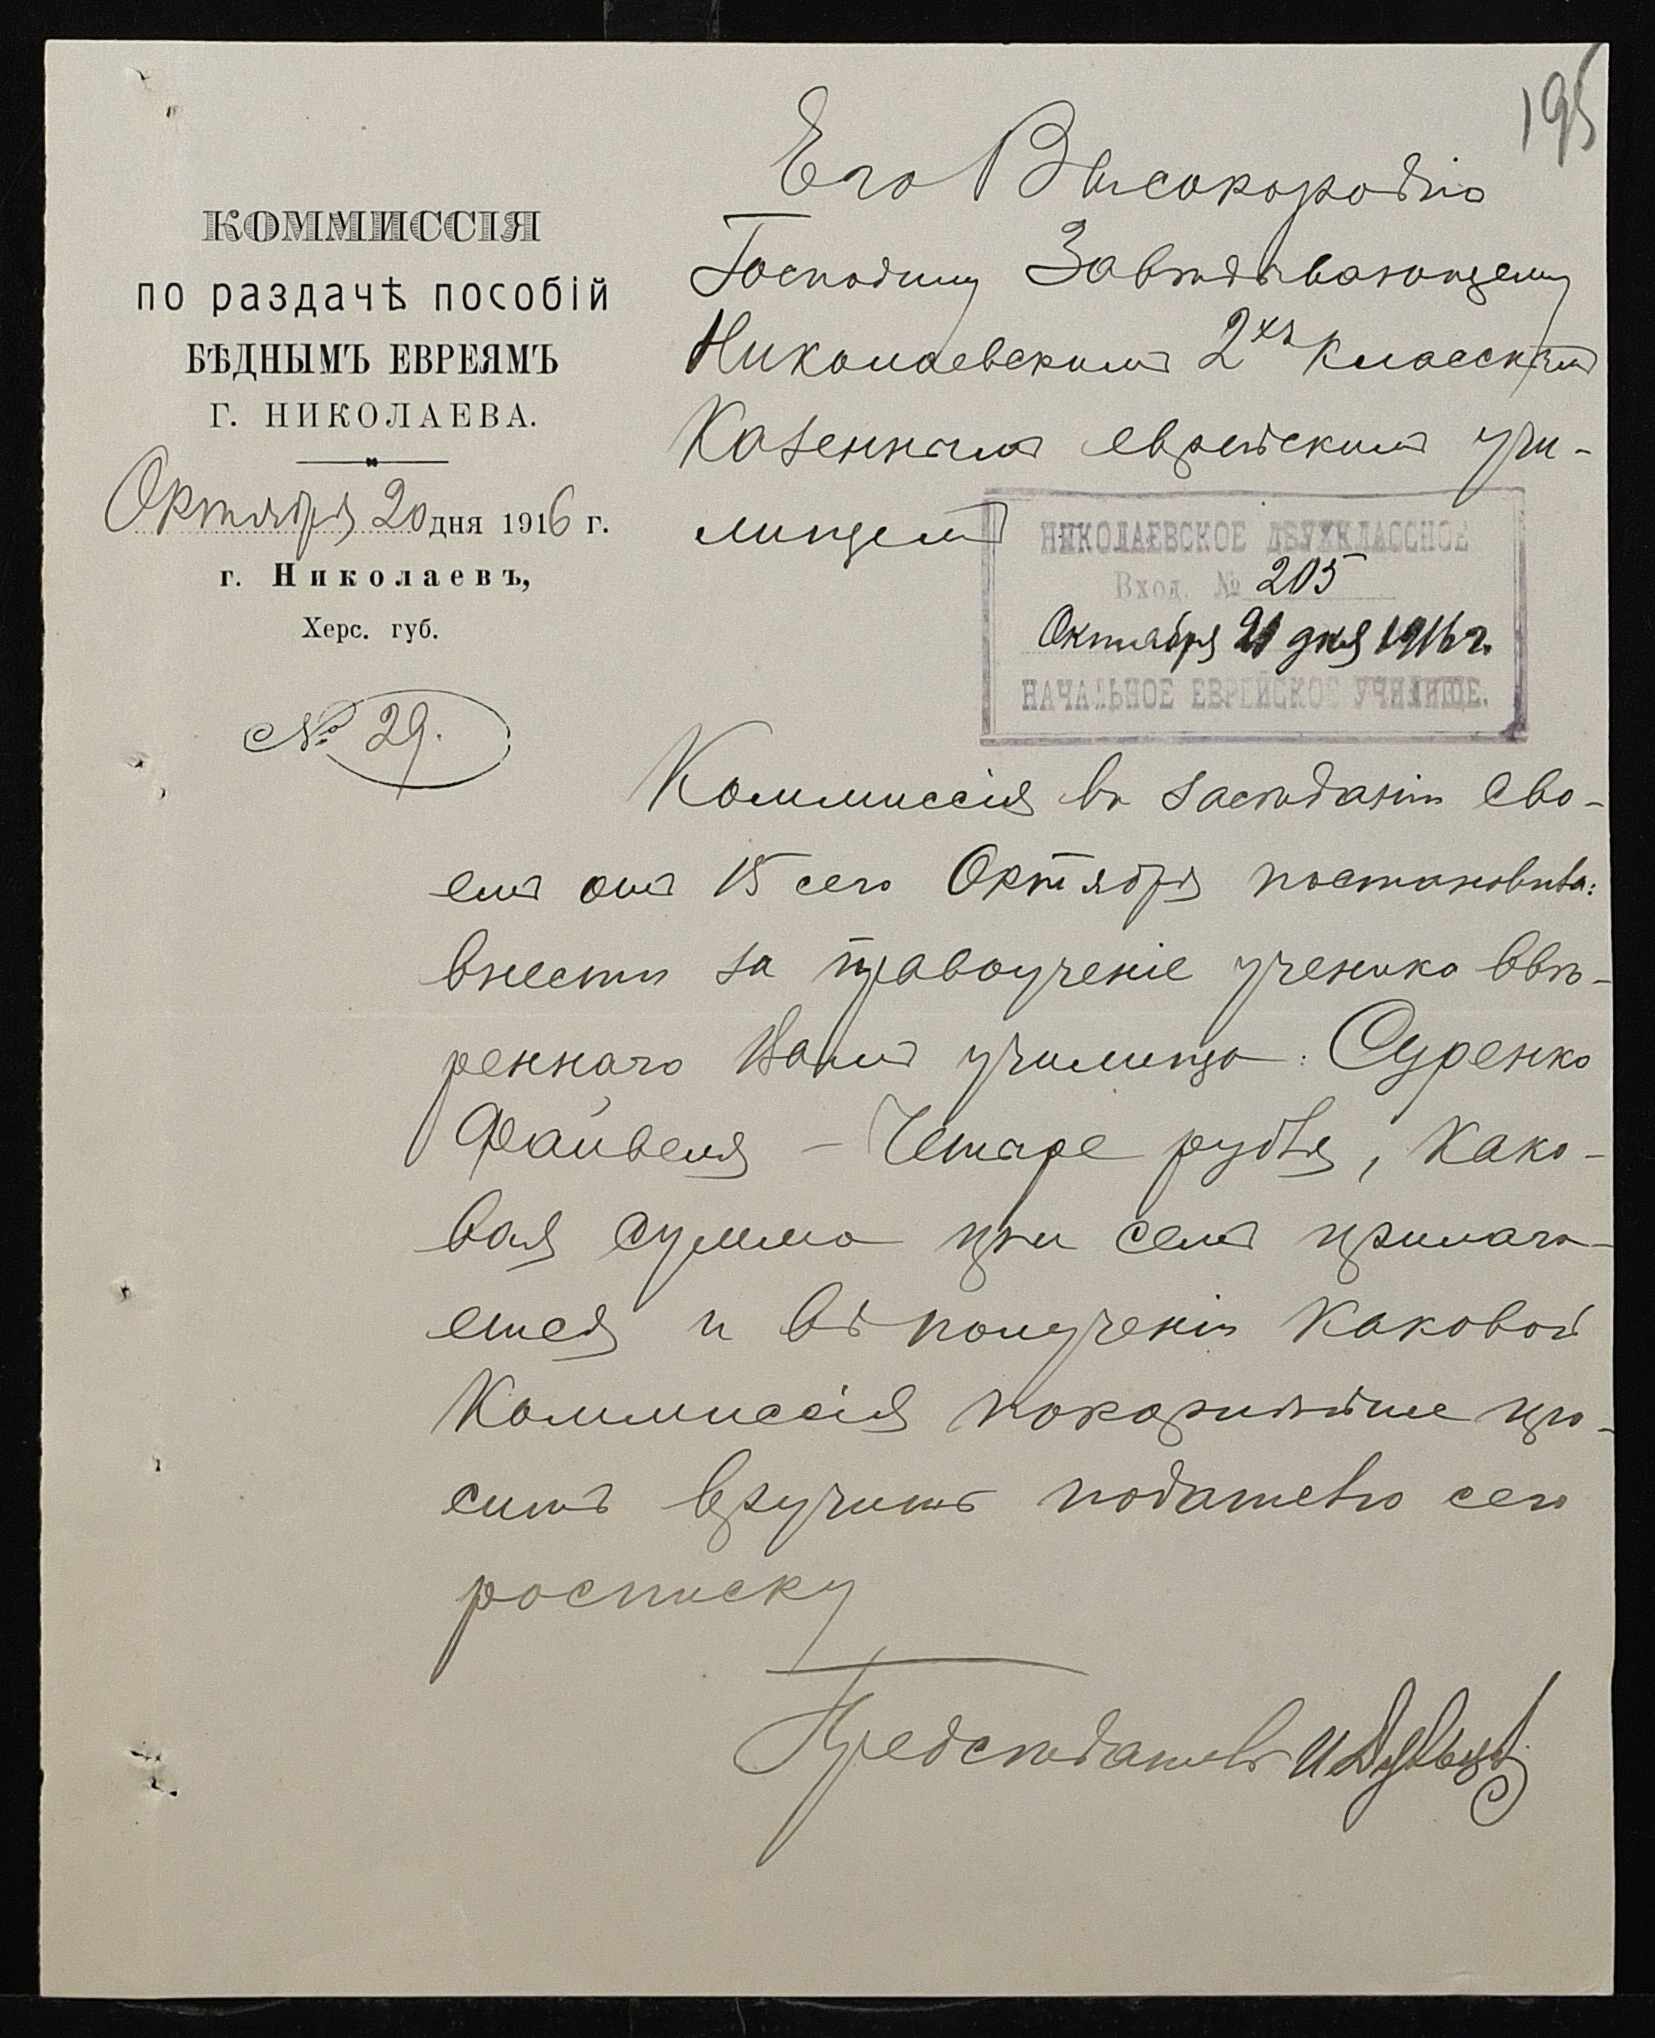 195
КОММИССІЯ
по раздачѣ пособій
БѢДНЫМЪ ЕВРЕЯМЪ
Г. НИКОЛАЕВА.
Октября 20 дня 1916 г.
г. Николаевъ,
Херс. губ.
№ 29.
Его Высокородію
Господину Завѣдывающему
Николаевскимъ 2хъ классным
Казеннымъ еврейскимъ учи-
лищемъ
НИКОЛАЕВСКОЕ ДВУХКЛАССНОЕ
Вход. № 205
Октября 21 дня 1916 г.
НАЧАЛЬНОЕ ЕВРЕЙСКОЕ УЧИЛИЩЕ.
Коммиссія въ засѣданіи сво-
емъ отъ 15 сего Октября постановила:
внести за правоученіе ученика ввѣ-
реннаго Вамъ училища: Суренко
Файвеля – Четыре рубля, како-
вая сумма при семъ прилага-
ется и въ полученіи каковой
Коммиссія покорнѣйше про-
ситъ вручить подателю сего
росписку
Предсѣдатель